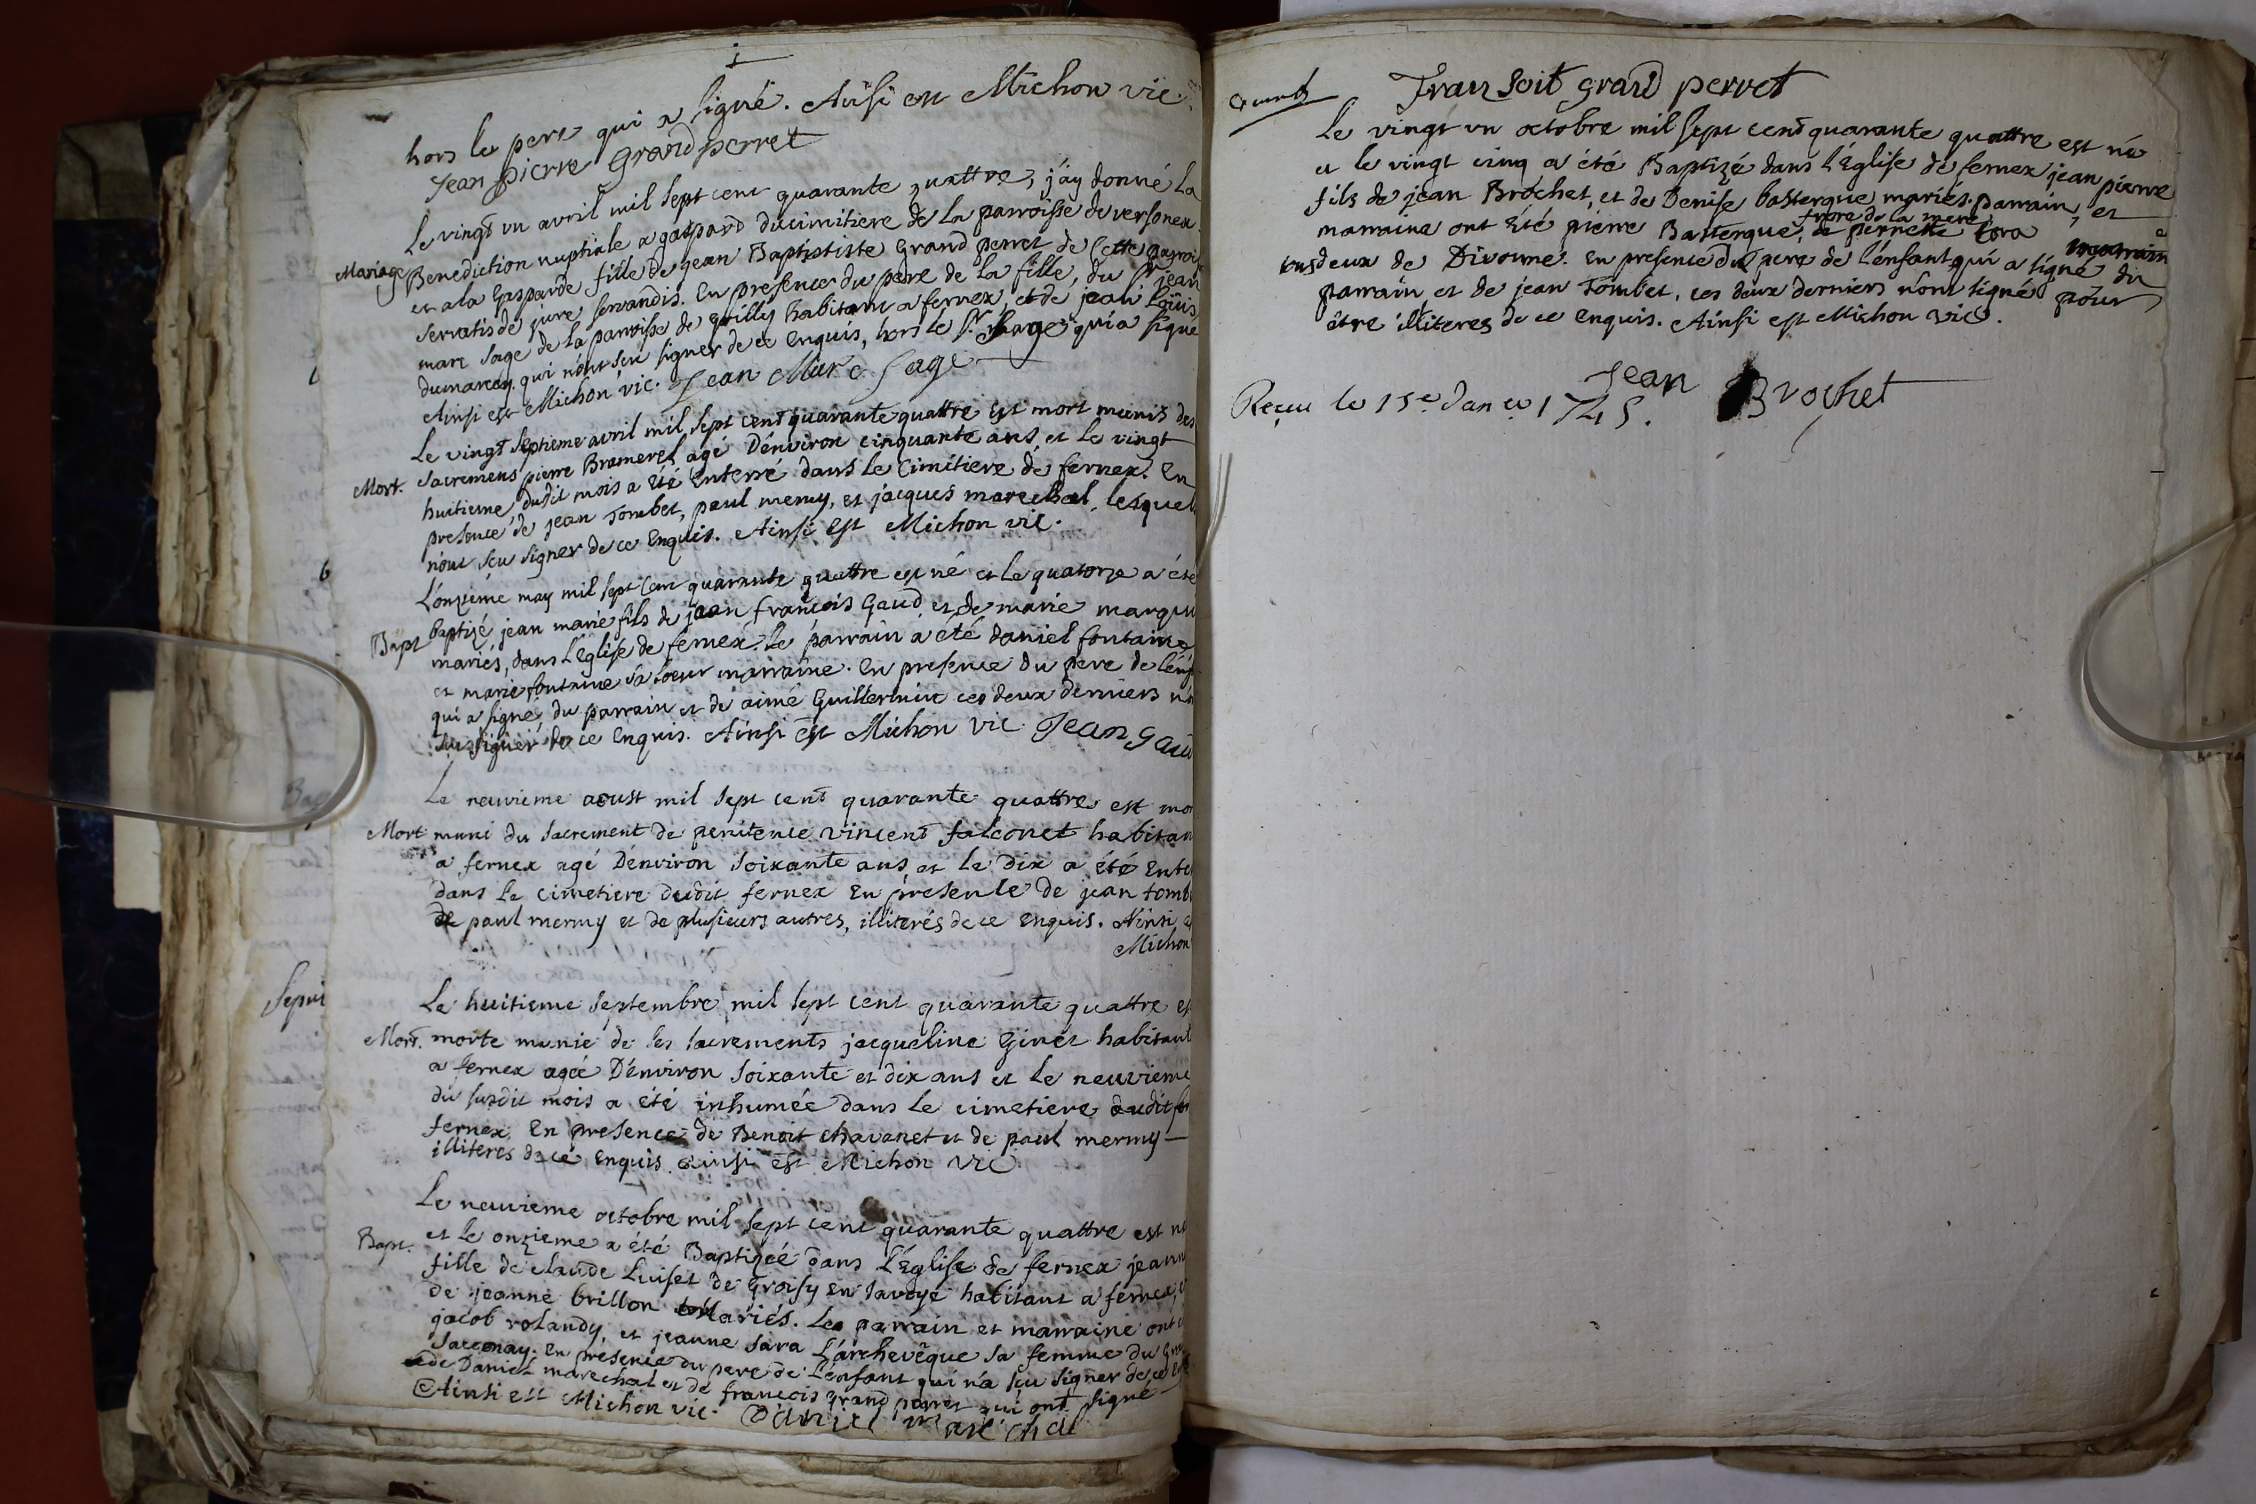 hors le pere qui a signé. Ainsi est Michon vic.
Jean pierre Grandperret
Le vingt un avril mil sept cent quarante quattre, j'ay donné La
Mariage Benediction nuptiale a gaspard ducimitiere de La parroisse de versonex
et a la Gasparde fille de jean Baptistite Grand perret de Cette parroi
servatis de jure servandis. En presence du pere de La fille, du Sr jean
marc sage de La parroisse de grilly habitant a fernex, et de jean Loüis
dumarcay qui n'ont sçu signer de ce Enquis, hors le Sr sage qui a signé
Ainsi est Michon vic. Jean Marc Sage
Le vingt septieme avril mil sept cent quarante quattre est mort munis des
Mort. Sacremens pierre Bramerel agé D'environ cinquante ans et Le vingt
huitieme dudit mois a été Enterré dans Le Cimitiere de fernex. En
presence de jean Tombet, paul mermy, et jacques marechal, lesquel
n'ont sçu signer de ce Enquis. Ainsi est Michon vic.
6
L'onzieme may mil sept Cent quarante quattre est né et Le quatorze a été
Bapt baptizé jean marie fils de jean françois Gaud et de marie margu
mariés, dans L'Eglise de fernex. Le parrain a été daniel fontaine
et marie fontaine sa soeur marraine. En presence du pere de l'enf
qui a signé, du parrain et de aimé Guillermin ces deux derniers n'o
sçu signer de ce Enquis. Ainsi est Michon vic Jean Gau
Le neuvieme aoust mil sept cent quarante quattre est mo
Mort muni du sacrement de penitence vincent falconet habitan
a fernex agé D'environ soixante ans et Le dix a été Ente
dans Le cimetiere dudit fernex En presence de jean tomb
de paul mermy et de plusieurs autres, illiterés de ce Enquis. Ainsi e
Michon
Sepul
Le huitieme septembre mil sept cent quarante quattre es
Mort. morte munie de ses sacrements jacqueline Ginet habitant
a fernex agée D'environ soixante et dix ans et Le neuvieme
du susdit mois a été inhumée dans Le cimetiere dudit
fernex. En presence de Benoit chavanet et de paul mermy
illiteres de ce Enquis ainsi est Michon vic
Le neuvieme octobre mil sept cent quarante quattre est né
Bapt. et Le onzieme a été Baptizée dans L'Église de fernex jeann
fille de claude Luiset de Groisy en Savoye habitant a fernex, et
de jeanne brillon Mariés. Les parrain et marraine ont é
jacob rolandy, et jeanne Sara L'archevêque sa femme du
Sacconay. En presence du pere de L'enfant qui n'a sçu signer de ce
de Daniel marechal et de françois grand perret qui ont signé
Ainsi est Michon vic. Daniel marechal
Fransoit grand perret
Le vingt un octobre mil sept cent quarante quattre est né
et le vingt cinq a été Baptizé dans l'Église de fernex jean pierre
fils de jean Brochet, et de Denise basterque mariés. parrain, et
marraine ont été pierre Basterque, frere de la mere, et pernette
tous deux de Divonne. En presence du pere de l'enfant qui a signé du
parrain et de jean Tombet, ces deux derniers n'ont signé pour
être illiteres de ce Enquis. Ainsi est Michon vic.
Jean Brochet
Reçeu le 15e Janer 1745.